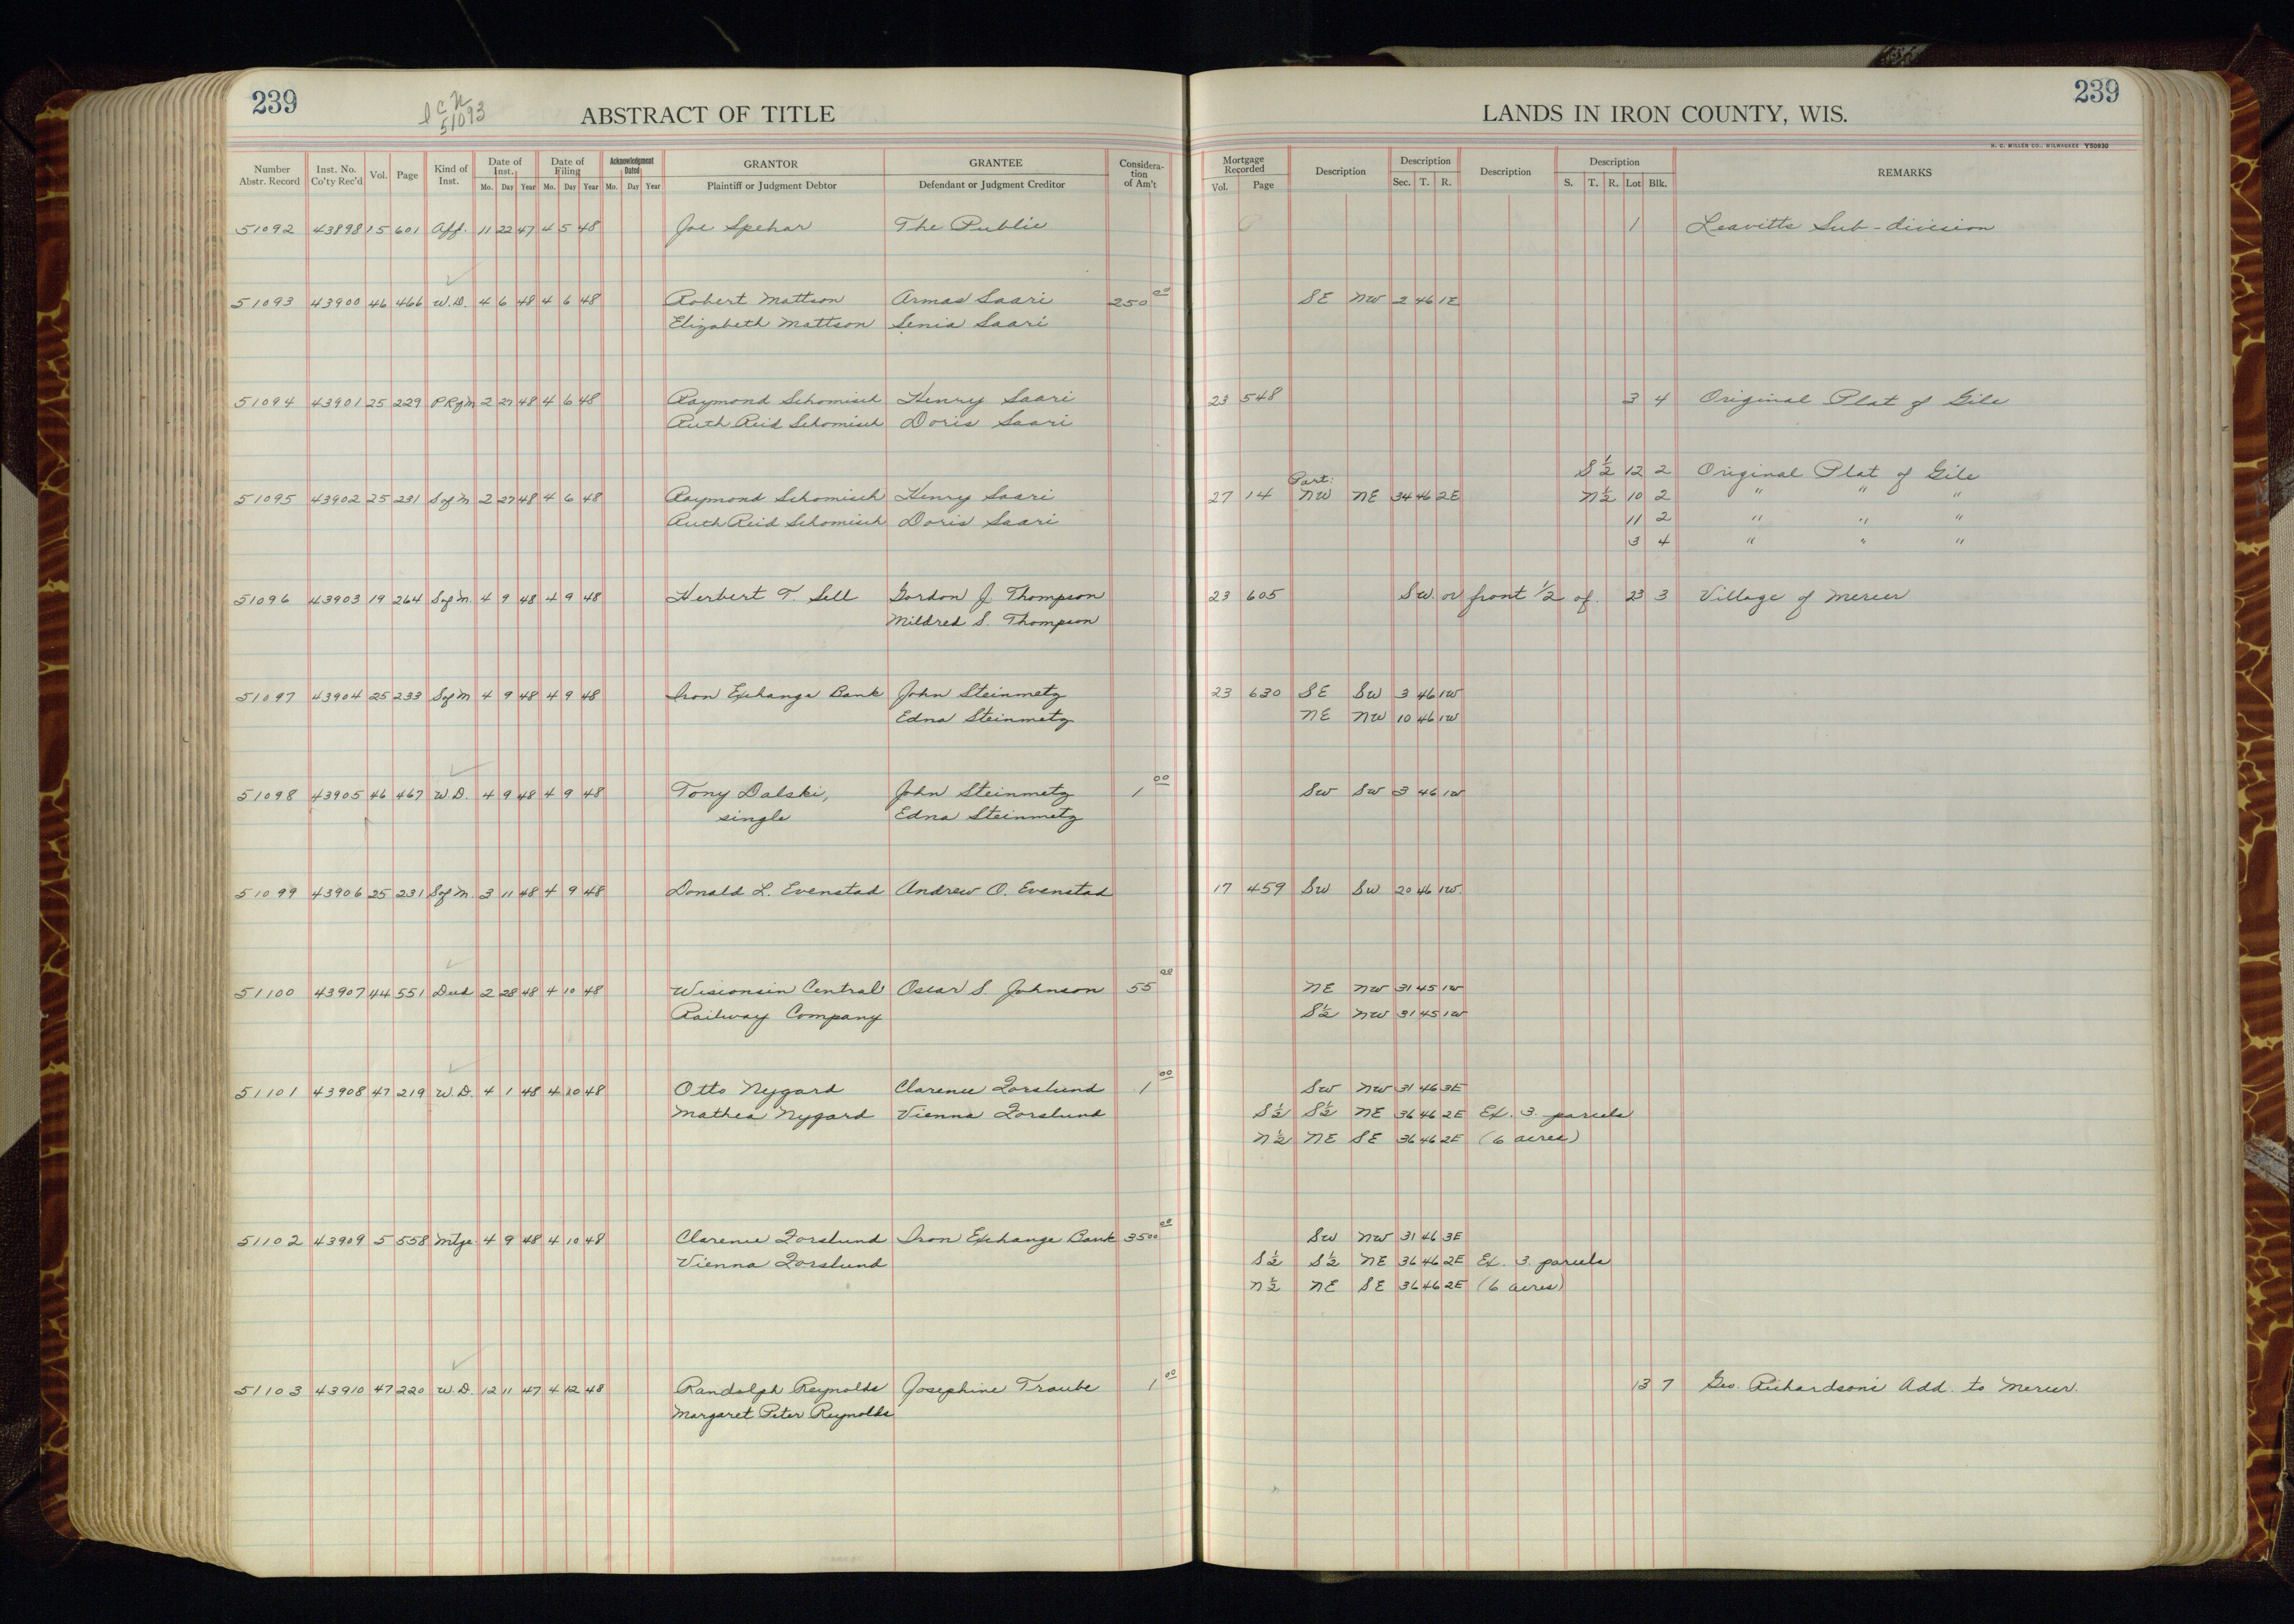 239
ABSTRACT OF TITLE
LANDS IN IRON COUNTY, WIS.
239
51093
H. C. MILLER CO., MILWAUKEE Y50930
Number Abstr. Record Inst. No. Co'ty Rec'd Vol. Page Kind of Inst. Date of Inst. Mo. Day Year Date of Filing Mo. Day Year Acknowledgment Dated Mo. Day Year GRANTOR Plaintiff or Judgment Debtor GRANTEE Defendant or Judgment Creditor Considera-tion of Am't Mortgage Recorded Vol. Page Description Description Sec. T. R. Description Description S. T. R. Lot Blk. REMARKS
51092 43898 15 601 Aff. 11 22 47 4 5 48 Joe Spehar The Public 1 Leavitts Sub-division
51093 43900 46 466 W.D. 4 6 48 4 6 48 Robert Mattson Armas Saari 250 00 SE NW 2 46 1E
Elizabeth Mattson Senia Saari
51094 43901 25 229 P Rgm 2 27 48 4 6 48 Raymond Schomisch Henry Saari 23 548 3 4 Original Plat of Gile
Ruth Reid Schomisch Doris Saari
S½ 12 2 Original Plat of Gile
51095 43902 25 231 S of M 2 27 48 4 6 48 Raymond Schomisch Henry Saari 27 14 Part: NW NE 34 46 2E N½ 10 2 " " "
Ruth Reid Schomisch Doris Saari 11 2 " " "
3 4 " " "
51096 43903 19 264 S of M. 4 9 48 4 9 48 Herbert T. Sell Gordon J. Thompson 23 605 SW. or front 1/2 of. 23 3 Village of Mercer
Mildred S. Thompson
51097 43904 25 233 S of M 4 9 48 4 9 48 Iron Exchange Bank John Steinmetz 23 630 SE SW 3 46 1W
Edna Steinmetz NE NW 10 46 1W
51098 43905 46 467 W D. 4 9 48 4 9 48 Tony Dalski, John Steinmetz 1 00 SW SW 3 46 1W
single Edna Steinmetz
51099 43906 25 231 S of M. 3 11 48 4 9 48 Donald L. Evenstad Andrew O. Evenstad 17 459 SW SW 20 46 1W.
51100 43907 44 551 Deed 2 28 48 4 10 48 Wisconsin Central Oscar S. Johnson 55 00 NE NW 31 45 1W
Railway Company S½ NW 31 45 1W
51101 43908 47 219 W.D. 4 1 48 4 10 48 Otto Nygard Clarence Forslund 1 00 SW NW 31 46 3E
Mathea Nygard Vienna Forslund S½ S½ NE 36 46 2E Ex. 3. parcels
N½ NE SE 36 46 2E (6 acres)
51102 43909 5 558 Mtge. 4 9 48 4 10 48 Clarence Forslund Iron Exchange Bank 3500 00 SW NW 31 46 3E
Vienna Forslund S½ S½ NE 36 46 2E Ex. 3. parcels
N½ NE SE 36 46 2E (6 acres)
51103 43910 47 220 W.D. 12 11 47 4 12 48 Randolph Reynolds Josephine Traube 1 00 13 7 Geo. Richardson's Add. to Mercer.
Margaret Peter Reynolds